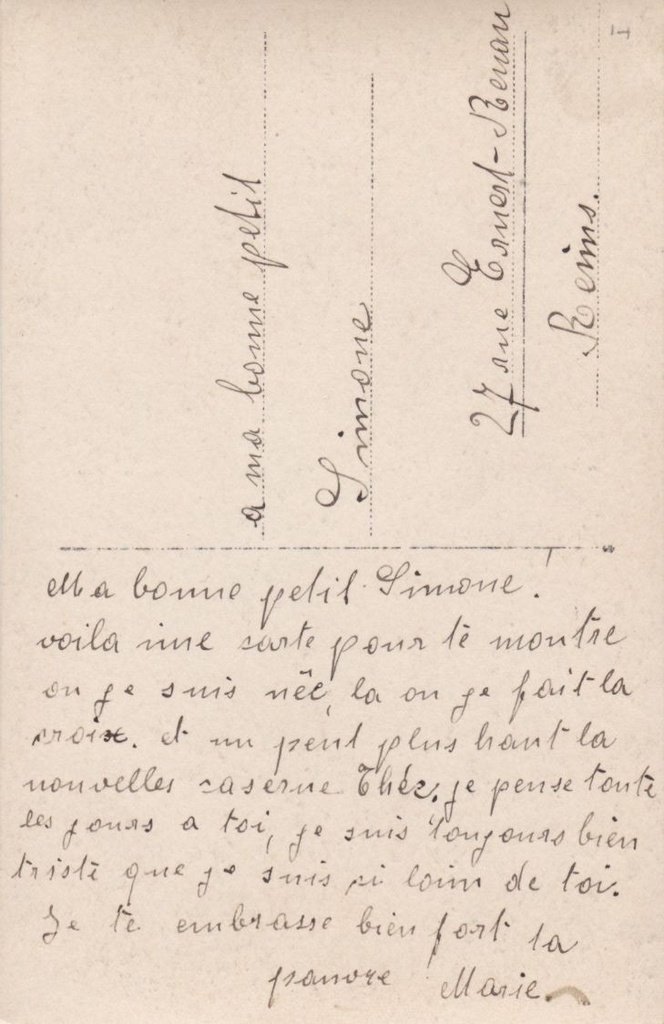 a ma bonne petit
Simone
27 rue Ernest-Renan
Reims.
I
Ma bonne petit Simone!
voila une carte pour tè montre
ou je suis nëe, la ou je fait la
croix. et un peut plus haut la
nouvelles caserne je pense toute
les jours a toi, je suis toujours bien
tristè que je suis si loim de toi.
Je te embrasse bien fort ta
pauvre Marie.